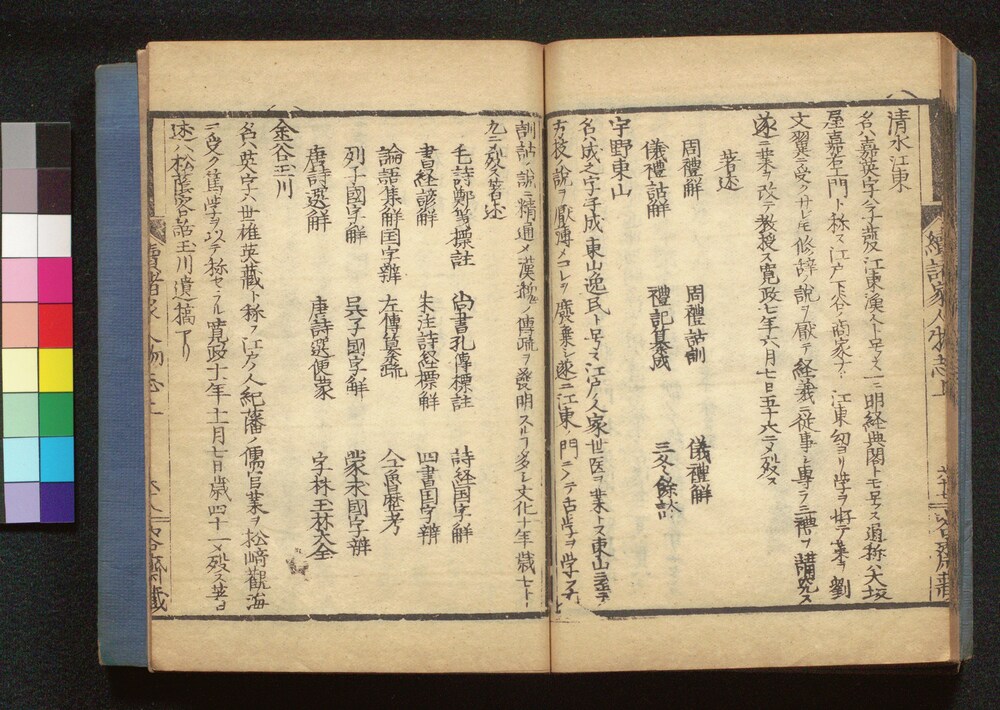 清水江東
名ハ嘉英字ハ子發江東漁人ト号ス一ニ明経典閣トモ号ス通称ハ大坂
屋嘉右エ門ト称ス江戸下谷ノ商家ナリ江東幼ヨリ学ヲ好テ業ヲ劉
文翼ニ受ク サレトモ修辞ノ説ヲ厭テ経義ニ従事シ専ラ三禮ヲ講究ス
遂ニ業ヲ改テ教授ス寛政七年六月七日五十六ニテ殁ス
著述
周禮解 周禮詁訓 儀禮解
儀禮詁解 禮記纂成 三冬餘話
宇野東山
名ハ成之字ハ子成東山逸民ト号ス江戸ノ人家世医ヲ業トス東山
古授ノ説ヲ厭薄メコレヲ廢棄シ遂ニ江東ノ門ニ入テ古学ヲ学フ
訓詁ノ説ニ精通メ漢物ノ傳疏ヲ發明スルヿ多シ文化十年歳七十
九ニ殁ス著述
毛詩鄭箋標註 尚書孔傳標註 詩経国字解
書経諺解 朱注詩経標解 四書国字辨
論語集解国字辨 左傳纂疏 仝魯歴考
列子國字解 呉子國字解 蒙求國字辨
唐詩選解 唐詩選便蒙 字林玉林大全
金谷玉川
名ハ英字ハ世雄英藏ト称ス江戸ノ人紀藩ノ儒官業ヲ松﨑觀海
ニ受ク篤学ヲ以テ称セラル寛政十一年十一月七日歳四十一メ殁ス著
述ハ松蔭客話玉川遺稿アリ
續諸家人物志上